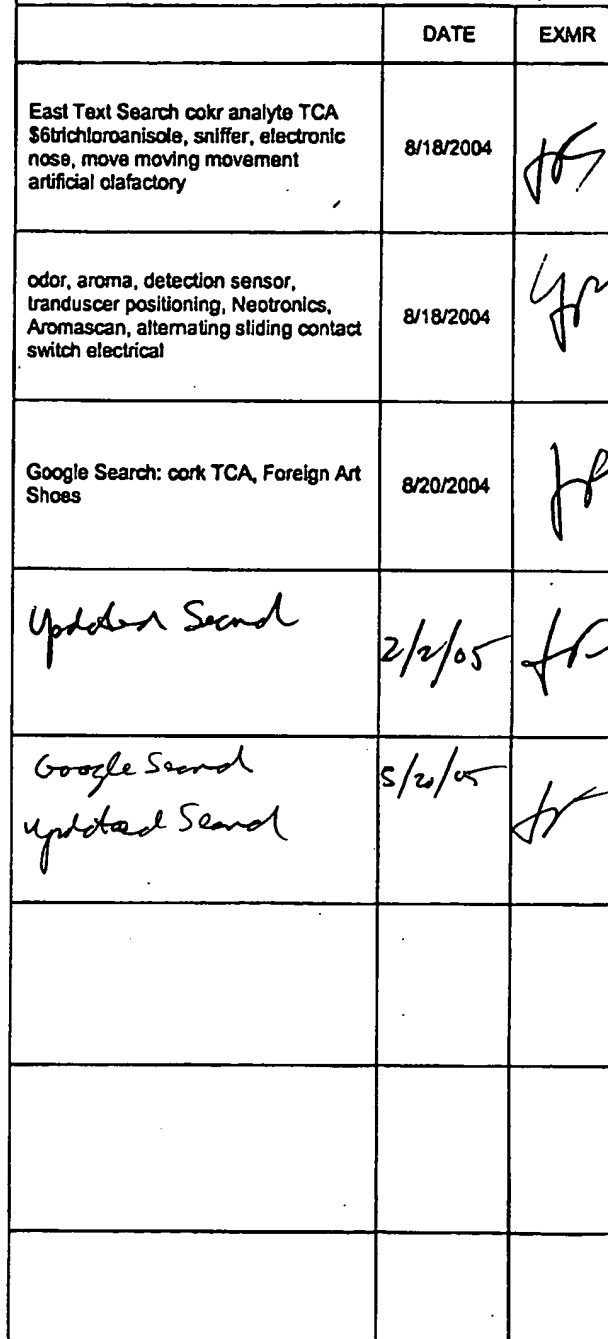 DATE EXMR
East Text Search cokr analyte TCA
$6trichloroanisole, sniffer, electronic
nose, move moving movement
artificial olafactory
8/18/2004
odor, aroma, detection sensor,
tranduscer positioning, Neotronics,
Aromascan, alternating sliding contact
switch electrical
8/18/2004
Google Search: cork TCA, Foreign Art
Shoes
8/20/2004
Updated Search
2/2/05
Google Search
5/20/05
updated Search